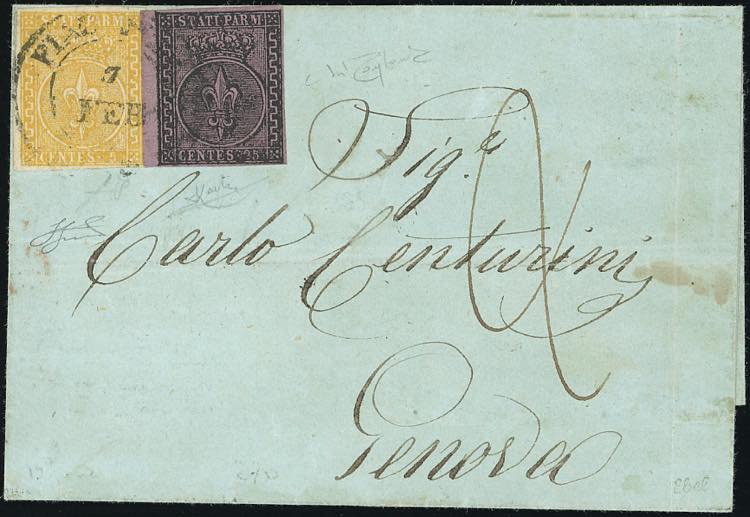 STATI PARM
STATI PARM
7
FEB
CENTES.
CENTES. 25
Sig.r
Carlo Centurini
Genova